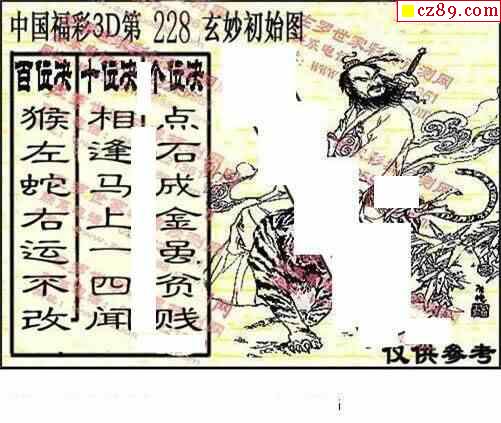 cz89.com
中国福彩3D第 228 玄妙初始图
百位决 十位决 个位决
猴左蛇右运不改
相逢马上一四闻
点石成金 贫贱
仅供参考